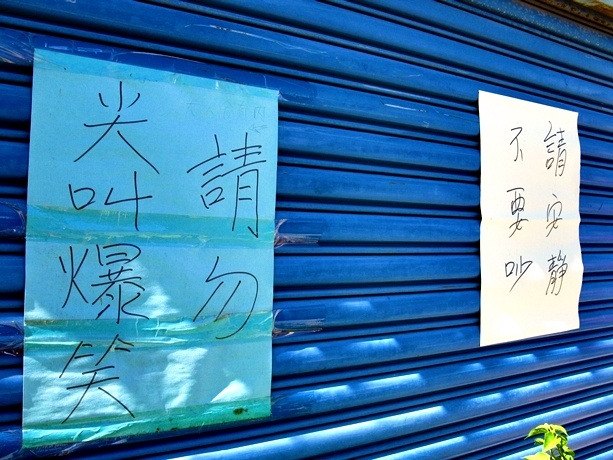 請勿
尖叫爆笑
請安静
不要吵